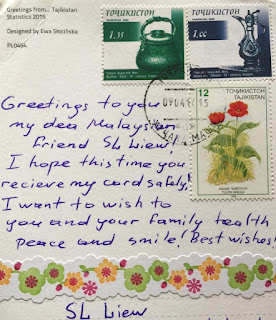 Greetings from... Tajikistan
Statistics 2015
Designed by Ewa Słocińska
PL0464
ТОҶИКИСТОН
1,35
ТОҶИКИСТОН
1,00
09 04
15
12
ТОҶИКИСТОН
Greetings to you
my dea Malaysian
friend SL Liew!
I hope this time you
recieve my card safely!
I want to wish to
you and your family health
peace and smile! Best wishes!
SL Liew